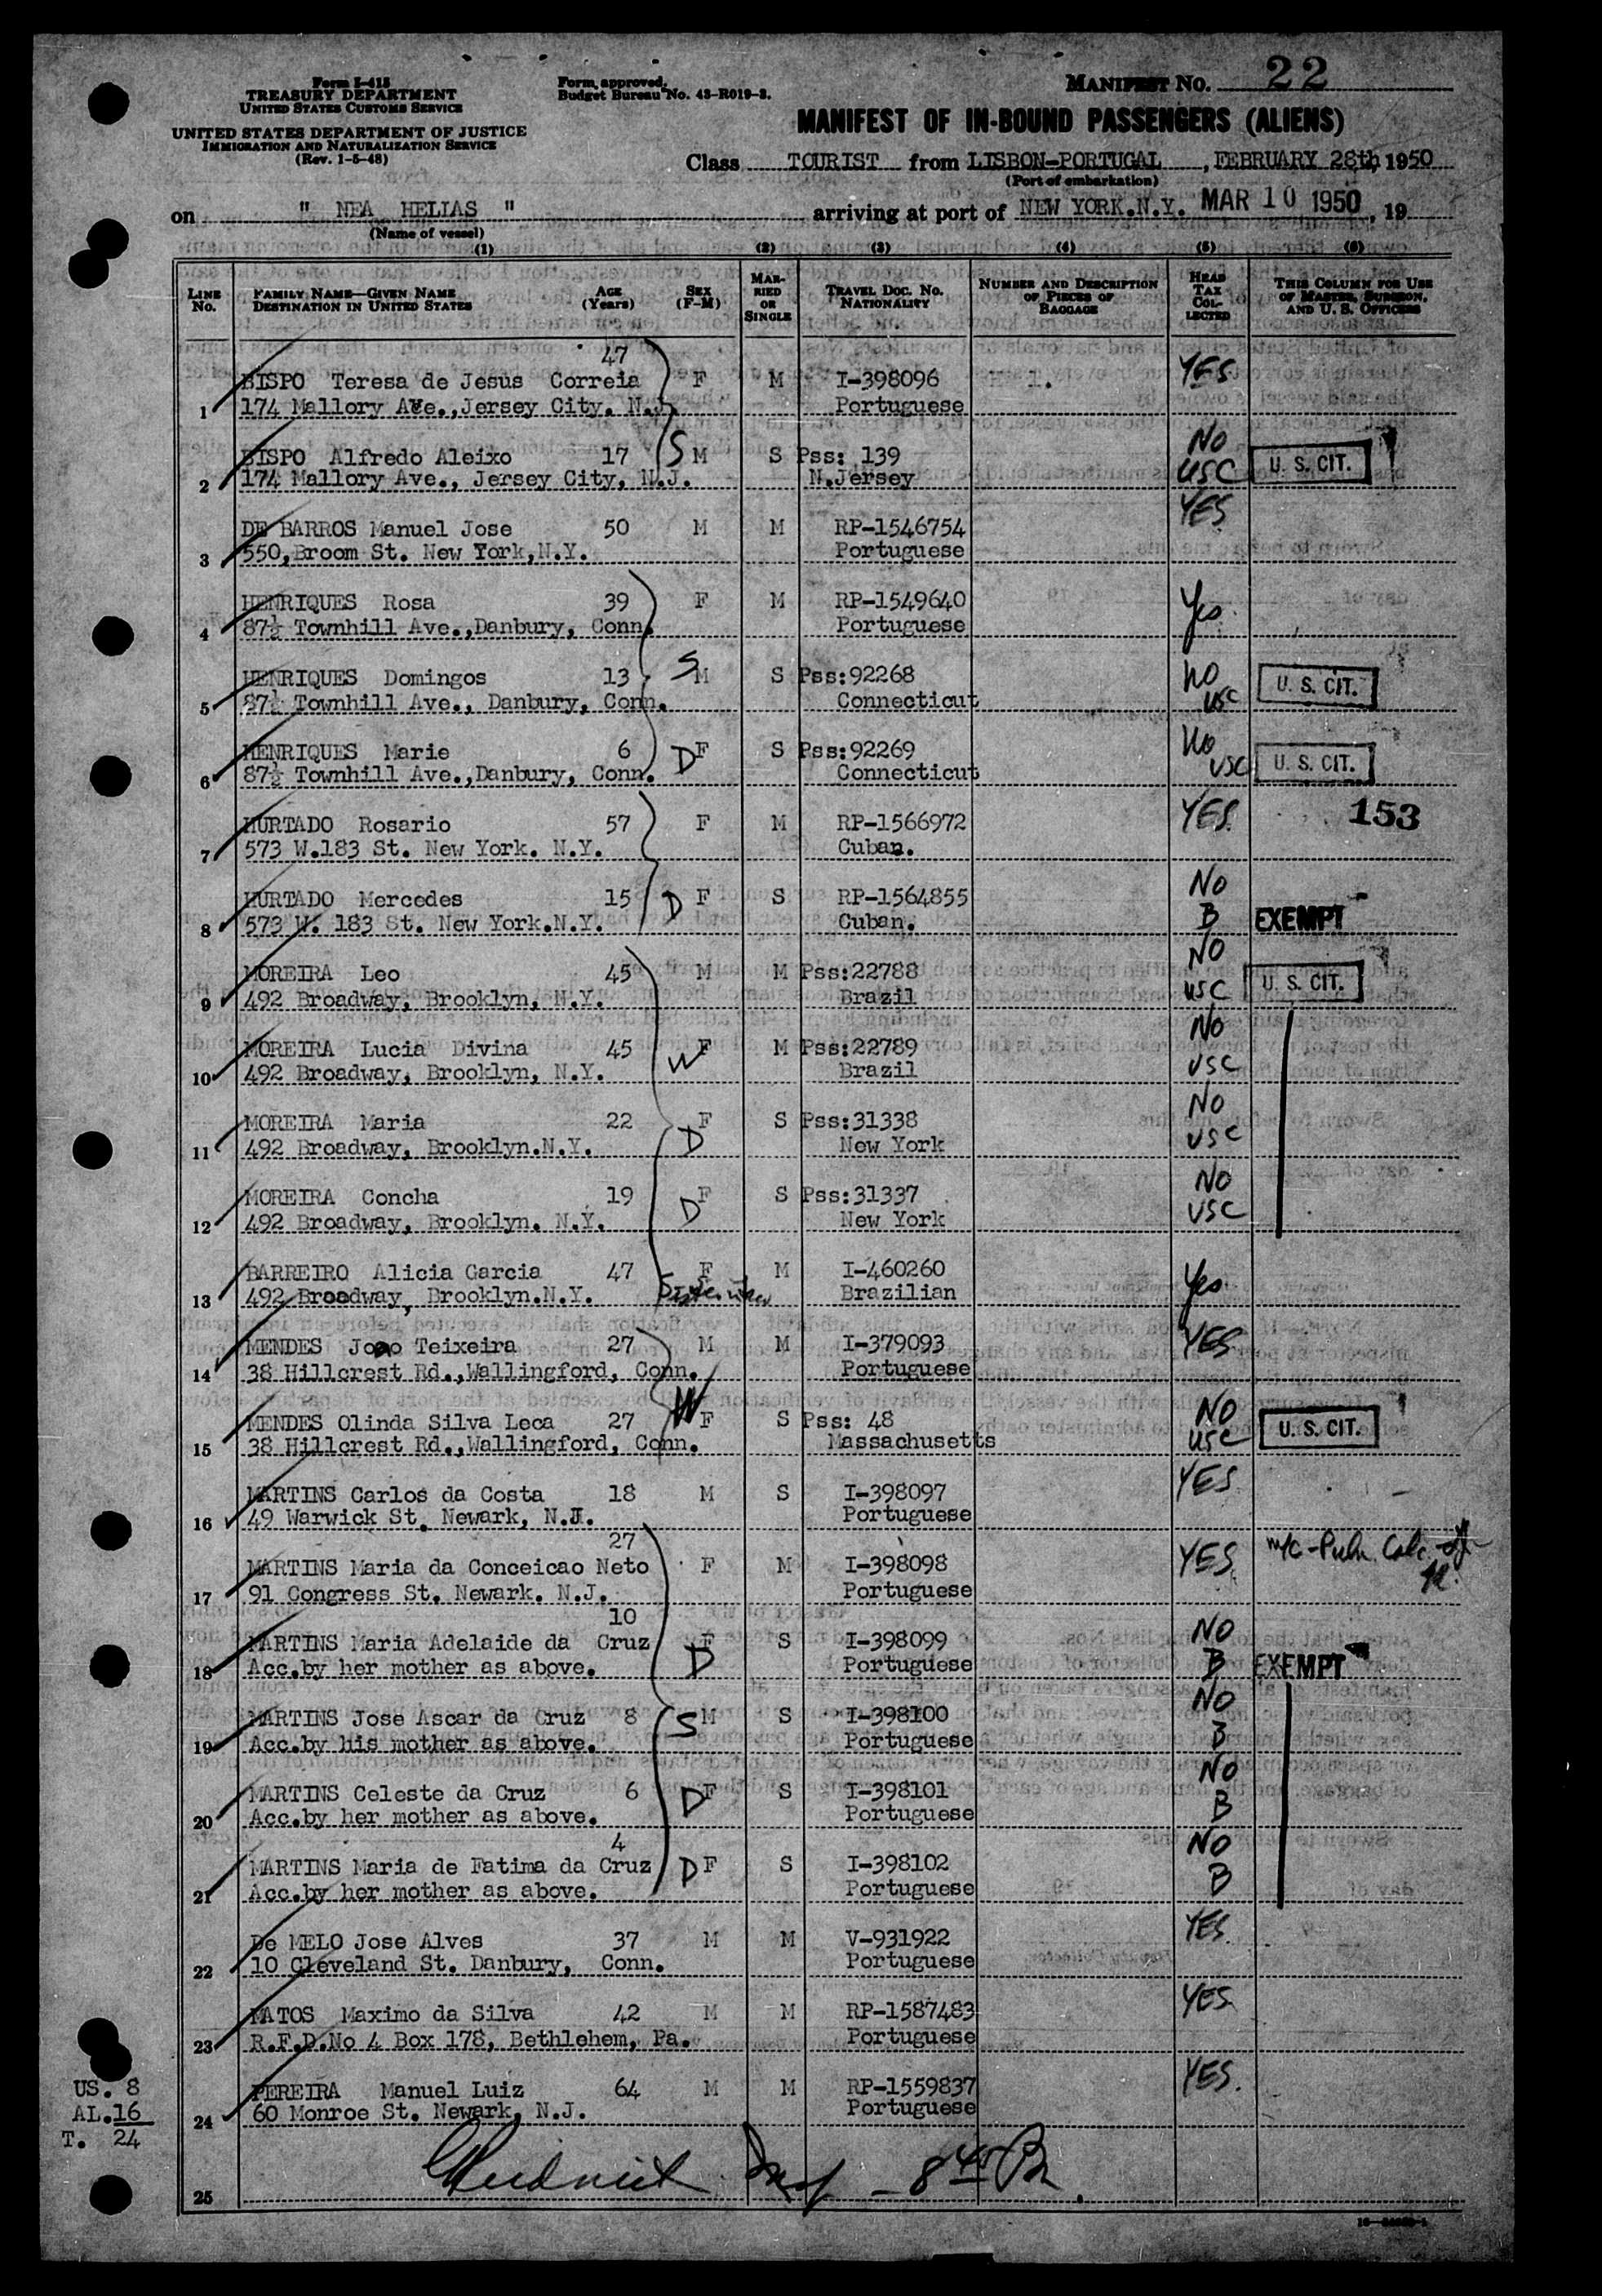 Form I-415
TREASURY DEPARTMENT
UNITED STATES CUSTOMS SERVICE
UNITED STATES DEPARTMENT OF JUSTICE
IMMIGRATION AND NATURALIZATION SERVICE
(Rev. 1-5-48)
Form approved.
Budget Bureau No. 43-R019-3.
MANIFEST NO. 22
MANIFEST OF IN-BOUND PASSENGERS (ALIENS)
Class TOURIST from LISBON-PORTUGAL, FEBRUARY 28th, 1950
(Port of embarkation)
on " NEA HELIAS " arriving at port of NEW YORK.N.Y. MAR 10 1950, 19
(Name of vessel)
(1) (2) (3) (4) (5) (6)
LINE No. FAMILY NAME—GIVEN NAME DESTINATION IN UNITED STATES AGE (Years) SEX (F-M) MARRIED OR SINGLE TRAVEL DOC. NO. NATIONALITY NUMBER AND DESCRIPTION OF PIECES OF BAGGAGE HEAD TAX COLLECTED THIS COLUMN FOR USE OF MASTER, SURGEON, AND U. S. OFFICERS
47
BISPO Teresa de Jesus Correia F M I-398096 YES
1 174 Mallory Ave., Jersey City. N.J. Portuguese
BISPO Alfredo Aleixo 17 S M S Pss: 139 NO U. S. CIT.
2 174 Mallory Ave., Jersey City, N.J. N.Jersey USC
DE BARROS Manuel Jose 50 M M RP-1546754 YES
3 550,Broom St. New York,N.Y. Portuguese
HENRIQUES Rosa 39 F M RP-1549640 Yes
4 87½ Townhill Ave.,Danbury, Conn. Portuguese
HENRIQUES Domingos 13 S M S Pss:92268 No U. S. CIT.
5 87½ Townhill Ave., Danbury, Conn. Connecticut USC
HENRIQUES Marie 6 D F S Pss:92269 No U. S. CIT.
6 87½ Townhill Ave.,Danbury, Conn. Connecticut USC
HURTADO Rosario 57 F M RP-1566972 YES 153
7 573 W.183 St. New York. N.Y. Cuban.
HURTADO Mercedes 15 D F S RP-1564855 NO
8 573 W. 183 St. New York.N.Y. Cuban. B EXEMPT
MOREIRA Leo 45 M M Pss:22788 NO U. S. CIT.
9 492 Broadway, Brooklyn, N.Y. Brazil USC
MOREIRA Lucia Divina 45 W F M Pss:22789 NO
10 492 Broadway, Brooklyn, N.Y. Brazil USC
MOREIRA Maria 22 D F S Pss:31338 NO
11 492 Broadway, Brooklyn.N.Y. New York USC
MOREIRA Concha 19 D F S Pss:31337 NO
12 492 Broadway, Brooklyn. N.Y. New York USC
BARREIRO Alicia Garcia 47 F M I-460260 Yes
13 492 Broadway, Brooklyn.N.Y. Brazilian
MENDES Joao Teixeira 27 M M I-379093 YES
14 38 Hillcrest Rd.,Wallingford, Conn. Portuguese
MENDES Olinda Silva Leca 27 W F S Pss: 48 NO U. S. CIT.
15 38 Hillcrest Rd.,Wallingford, Conn. Massachusetts USC
MARTINS Carlos da Costa 18 M S I-398097 YES
16 49 Warwick St. Newark, N.J. Portuguese
27
MARTINS Maria da Conceicao Neto F M I-398098 YES
17 91 Congress St. Newark. N.J. Portuguese
10
MARTINS Maria Adelaide da Cruz D F S I-398099 NO
18 Acc.by her mother as above. Portuguese B EXEMPT
MARTINS Jose Ascar da Cruz 8 S M S I-398100 NO
19 Acc.by his mother as above. Portuguese B
MARTINS Celeste da Cruz 6 D F S I-398101 NO
20 Acc.by her mother as above. Portuguese B
4
MARTINS Maria de Fatima da Cruz D F S I-398102 NO
21 Acc.by her mother as above. Portuguese B
De MELO Jose Alves 37 M M V-931922 YES
22 10 Cleveland St. Danbury, Conn. Portuguese
MATOS Maximo da Silva 42 M M RP-1587483 YES
23 R.F.D.No 4 Box 178, Bethlehem, Pa. Portuguese
PEREIRA Manuel Luiz 64 M M RP-1559837 YES.
24 60 Monroe St. Newark, N.J. Portuguese
US. 8
AL.16
T. 24
25